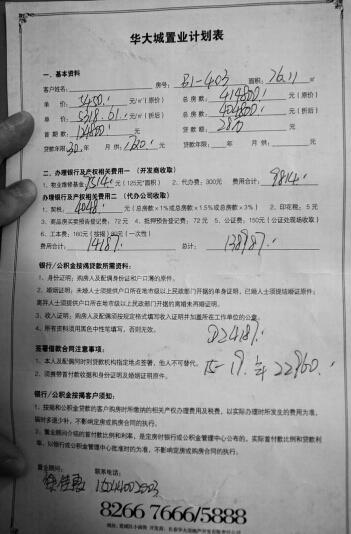 华大城置业计划表
一、基本资料
客户姓名: 房号: B1-403 面积: 76.11 ㎡
单 价: 5450. 元/㎡(原价) 总 房 款: 414800. 元(原价)
单 价: 5318.61. 元/㎡(折后) 总 房 款: 404800. 元(折后)
首 期 款: 124800. 元 贷 款 额: 28万 元
贷款年限: 30. 年 月 供: 元 贷款年限: 年 月 供: 元
二、办理银行及产权相关费用一 (开发商收取)
1、物业维修基金 9514. 元(125元*面积) 2、代办费:300元 费用合计: 9814. 元
办理银行及产权相关费用二 (代办公司收取)
1、契税: 4048. 元(总房款×1%或总房款×1.5%或总房款×3%) 2、印花税:5 元
3、商品房买卖预告登记费:72 元 4、抵押预告登记费:72 元 5、公证费:150元(公证处现场收取)
6、工本费:160元(按揭) 元(一次性)
费用合计: 元 总计: 138987. 元
银行/公积金按揭贷款所需资料:
1、身份证明:购房人及配偶身份证和户口薄的原件。
2、婚姻证明:未婚人士须提供户口所在地市级以上民政部门开据的单身证明,已婚人士须提结婚证原件;
离异人士须提供户口所在地市级以上民政部门开据的离婚未再婚证明。
3、收入证明:购房人及配偶须按规定格式填写收入证明并加盖所在工作单位的公章。
4、所有资料须用黑色中性笔填写,否则无效。
签署借款合同注意事项:
1、本人及配偶同时到贷款机构指定地点签署,他人不可替代。
2、须携带首付款收据和身份证明及婚姻证明原件。
银行/公积金按揭客户须知:
1、按揭和公积金贷款的客户购房时所缴纳的相关产权办理费用及税费,以实际办理时所发生的费用为准,
辑时多退少补,不影响定房或购房合同的执行。
2、置业顾问介绍的首付款比例和利率,是定房时银行或公积金管理中心公布的。实际首付款比例和贷款利
率,以银行或公积金管理中心批准时的为准,不影响定房或购房合同的执行。
置业顾问: 联系电话:
8266 7666/5888